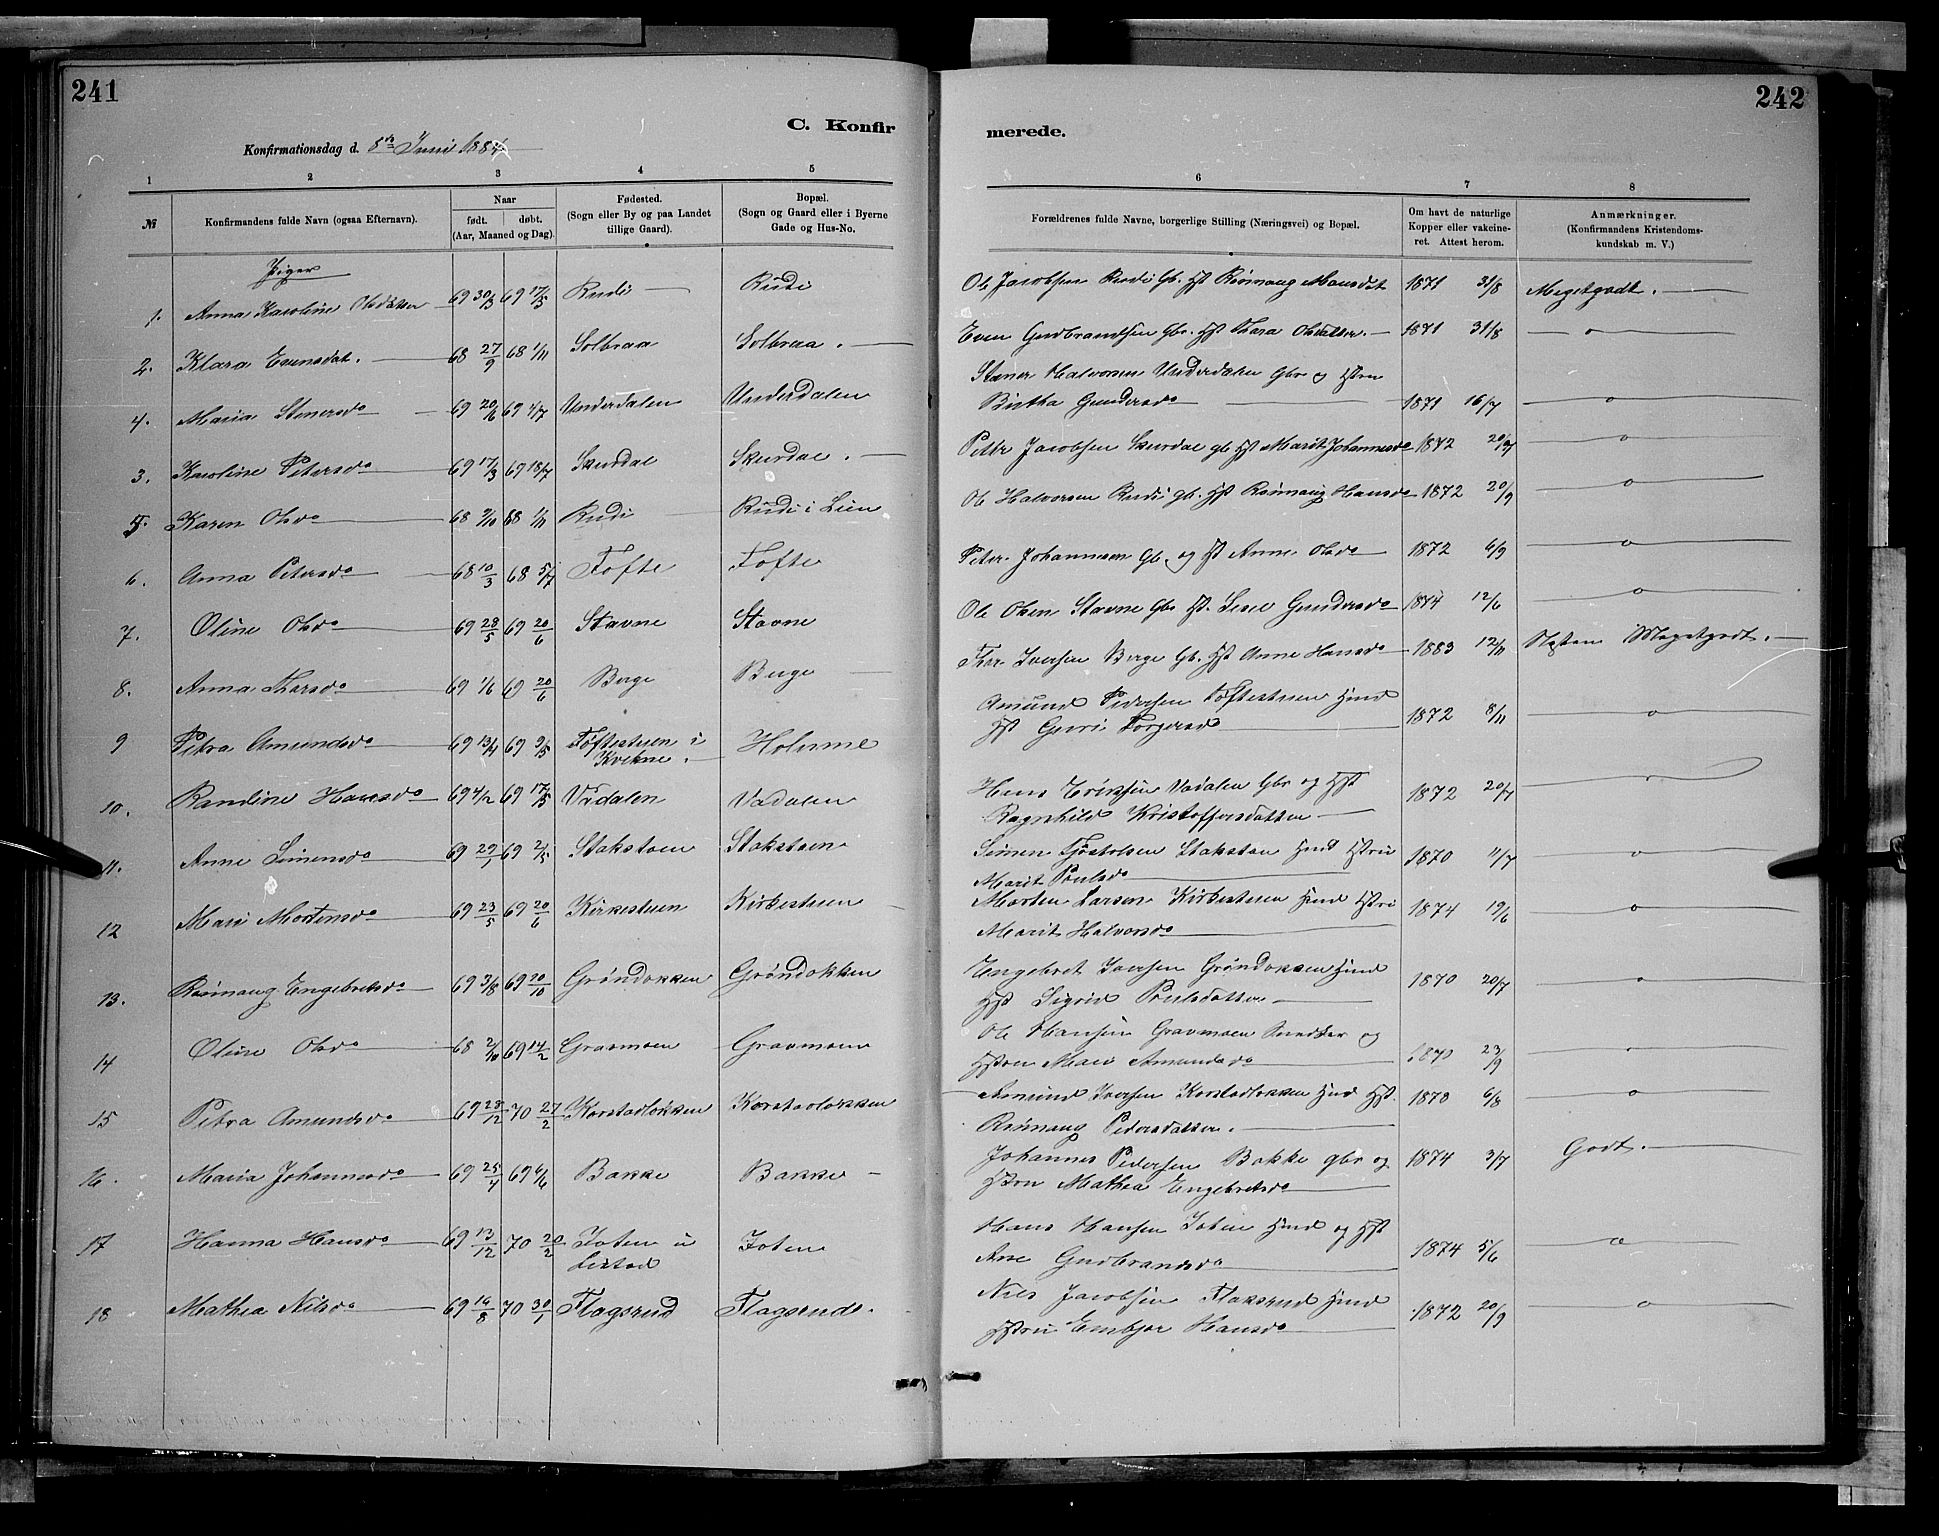 241
242
C. Konfir
merede.
Konfirmationsdag d. 8de Juni 1884
1 2 3 4 5
6 7 8
№
Konfirmandens fulde Navn (ogsaa Efternavn).
Naar
født. døbt.
(Aar, Maaned og Dag).
Fødested.
(Sogn eller By og paa Landet
tillige Gaard).
Bopæl.
(Sogn og Gaard eller i Byerne
Gade og Hus-No.
Forældrenes fulde Navne, borgerlige Stilling (Næringsvei) og Bopæl.
Om havt de naturlige
Kopper eller vakcine-
ret. Attest herom.
Anmærkninger.
(Konfirmandens Kristendoms-
kundskab m. V.)
Piger
1. Anna Karoline Olsdatter 69 30/3 69 17/5 Rudi Rudi
Ole Jacobsen Rudi Gb. Hst Rønnaug Hansdat 1871 31/8 Megetgodt.
2. Klara Evensdat. 68 27/9 68 1/11 Solbraa Solbraa.
Even Gudbrandsen Gbr. Hst Thora Olsdatter. 1871 31/8 o
4. Maria Stenersd 69 20/6 69 4/7 Underdalen Underdalen
Stener Halvorsen Underdalen Gbr og Hstru
Birtha Gundersd 1871 16/7 o
3. Karoline Petersd 69 17/3 69 18/7 Skurdal Skurdal.
Petter Jacobsen Skurdal gb Hst Marit Johannesd 1872 20/9 o
5. Karen Olsd 68 9/10 68 1/11 Rudi Rudi i Lien
Ole Halvorsen Rudi gb. Hst Rønnaug Hansd 1872 20/9 o
6. Anna Petersd 68 10/3 68 5/7 Tofte Tofte
Peter Johannesen Gb. og Hst Anne Olsd 1872 6/9 o
7. Oline Olsd 69 28/5 69 20/6 Stavne Stavne
Ole Olsen Stavne Gbr Hst. Gundersd 1874 12/6 o
8. Anna Thorsd 69 1/6 69 20/6 Berge Berge
Thor Iversen Berge Gb. Hst Anne Hansd 1883 12/11 Næsten Megetgodt.
9 Petra Amundsd 69 13/4 69 9/5 Tøftestuen i
Kvikne. Holmme
Amund Pedersen Tøftestuen Hmd
Hst Guri Torgersd 1872 8/11 o
10. Randine Hansd 69 4/2 69 17/5 Vadalen Vadalen
Hans Eriksen Vadalen Gbr og Hst
Ragnhild Kristoffersdatter 1872 20/7
11. Anne Simensd 69 29/1 69 2/5 Stakstoen Stakstoen
Simen Tjøstolsen Stakstoen Hmd Hstru
Marit Poulsd 1870 11/7 o
12 Mari Mortensd 69 23/5 69 20/6 Kirkestuen Kirkestuen
Morten Larsen Kirkestuen Hmd Hstru
Marit Halvorsd 1874 19/6 o
13. Rønnaug Engebretsd 69 3/8 69 20/10 Grøndokken Grøndokken
Engebret Iversen Grøndokken Hmd
Hst Sigrid Poulsdatter 1870 20/7 o
14 Oline Olsd 68 2/10 69 14/2 Gravmoen Gravmoen
Ole Hansen Gravmoen Snedker og
Hstru Mari Amundsd 1870 23/9
15 Petra Amundsd 69 28/12 70 27/2 Korstadløkken Korstadløkken
Amund Iversen Korstadløkken Hmd Hst.
Rønnaug Pedersdatter. 1870 6/8 o
16. Maria Johannesd 69 25/4 69 6/6 Bakke Bakke
Johannes Pedersen Bakke gbr og
Hstru Mathea Engebretsd 1874 3/7 Godt.
17 Hanna Hansd 69 13/12 70 20/2 Joten u
Listad Joten
Hans Hansen Joten Hmd og Hst
Ane Gudbrandsd 1874 5/6 o
18 Mathea Nilsd 69 16/8 70 30/1 Flagsrud Flagsrude.
Nils Jacobsen Flaksrud Hmd
Hstru Embjør Hansd 1872 20/9 o